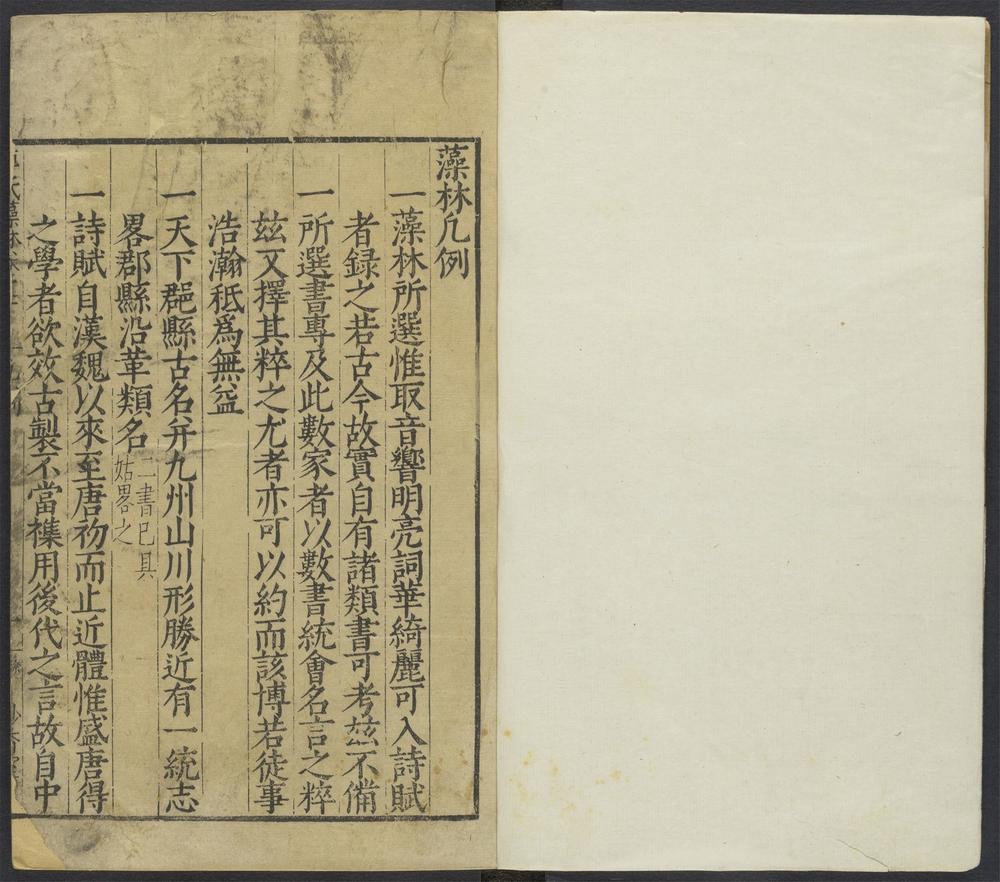 藻林凡例
一藻林所選惟取音響明亮詞華綺麗可入詩賦
者録之若古今故實自有諸類書可考玆不備
一所選書專及此數家者以數書統會名言之粹
玆又擇其粹之尤者亦可以約而該博若徒事
浩瀚秪爲無益
一天下郡縣古名并九州山川形勝近有一統志
畧郡縣沿革類名二書已具
姑畧之
一詩賦自漢魏以來至唐初而止近體惟盛唐得
之學者欲效古製不當襍用後代之言故自中
氏藻林